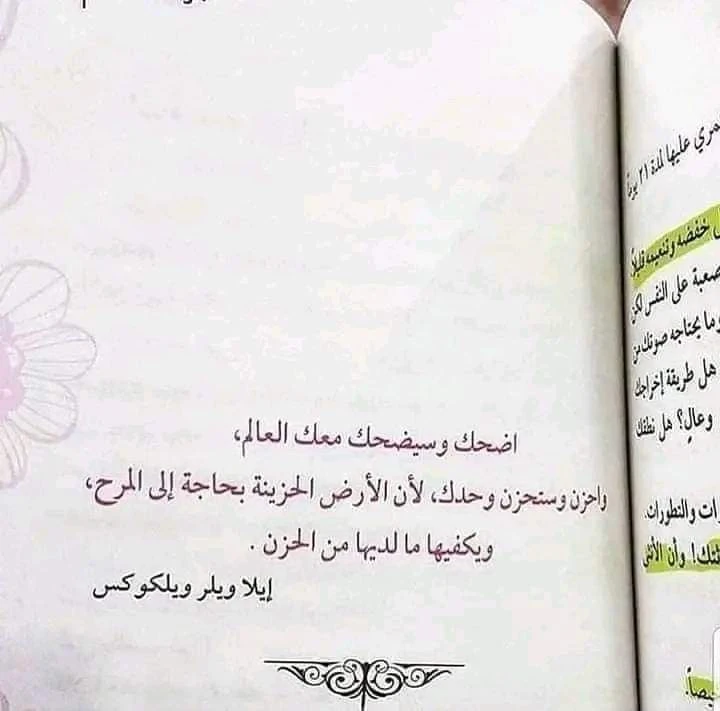 اضحك وسيضحك معك العالم،
واحزن وستحزن وحدك، لأن الأرض الحزينة بحاجة إلى المرح،
ويكفيها ما لديها من الحزن .
إيلا ويلر ويلكوكس
عليها لمدة ٢١ يوماً
خفضه وتنعيمه قليلاً
صعبة على النفس لكن
وما يحتاجه صوتك من
هل طريقة إخراجك
وعالٍ؟ هل نطقك
والتطورات.
وأن الأنثى